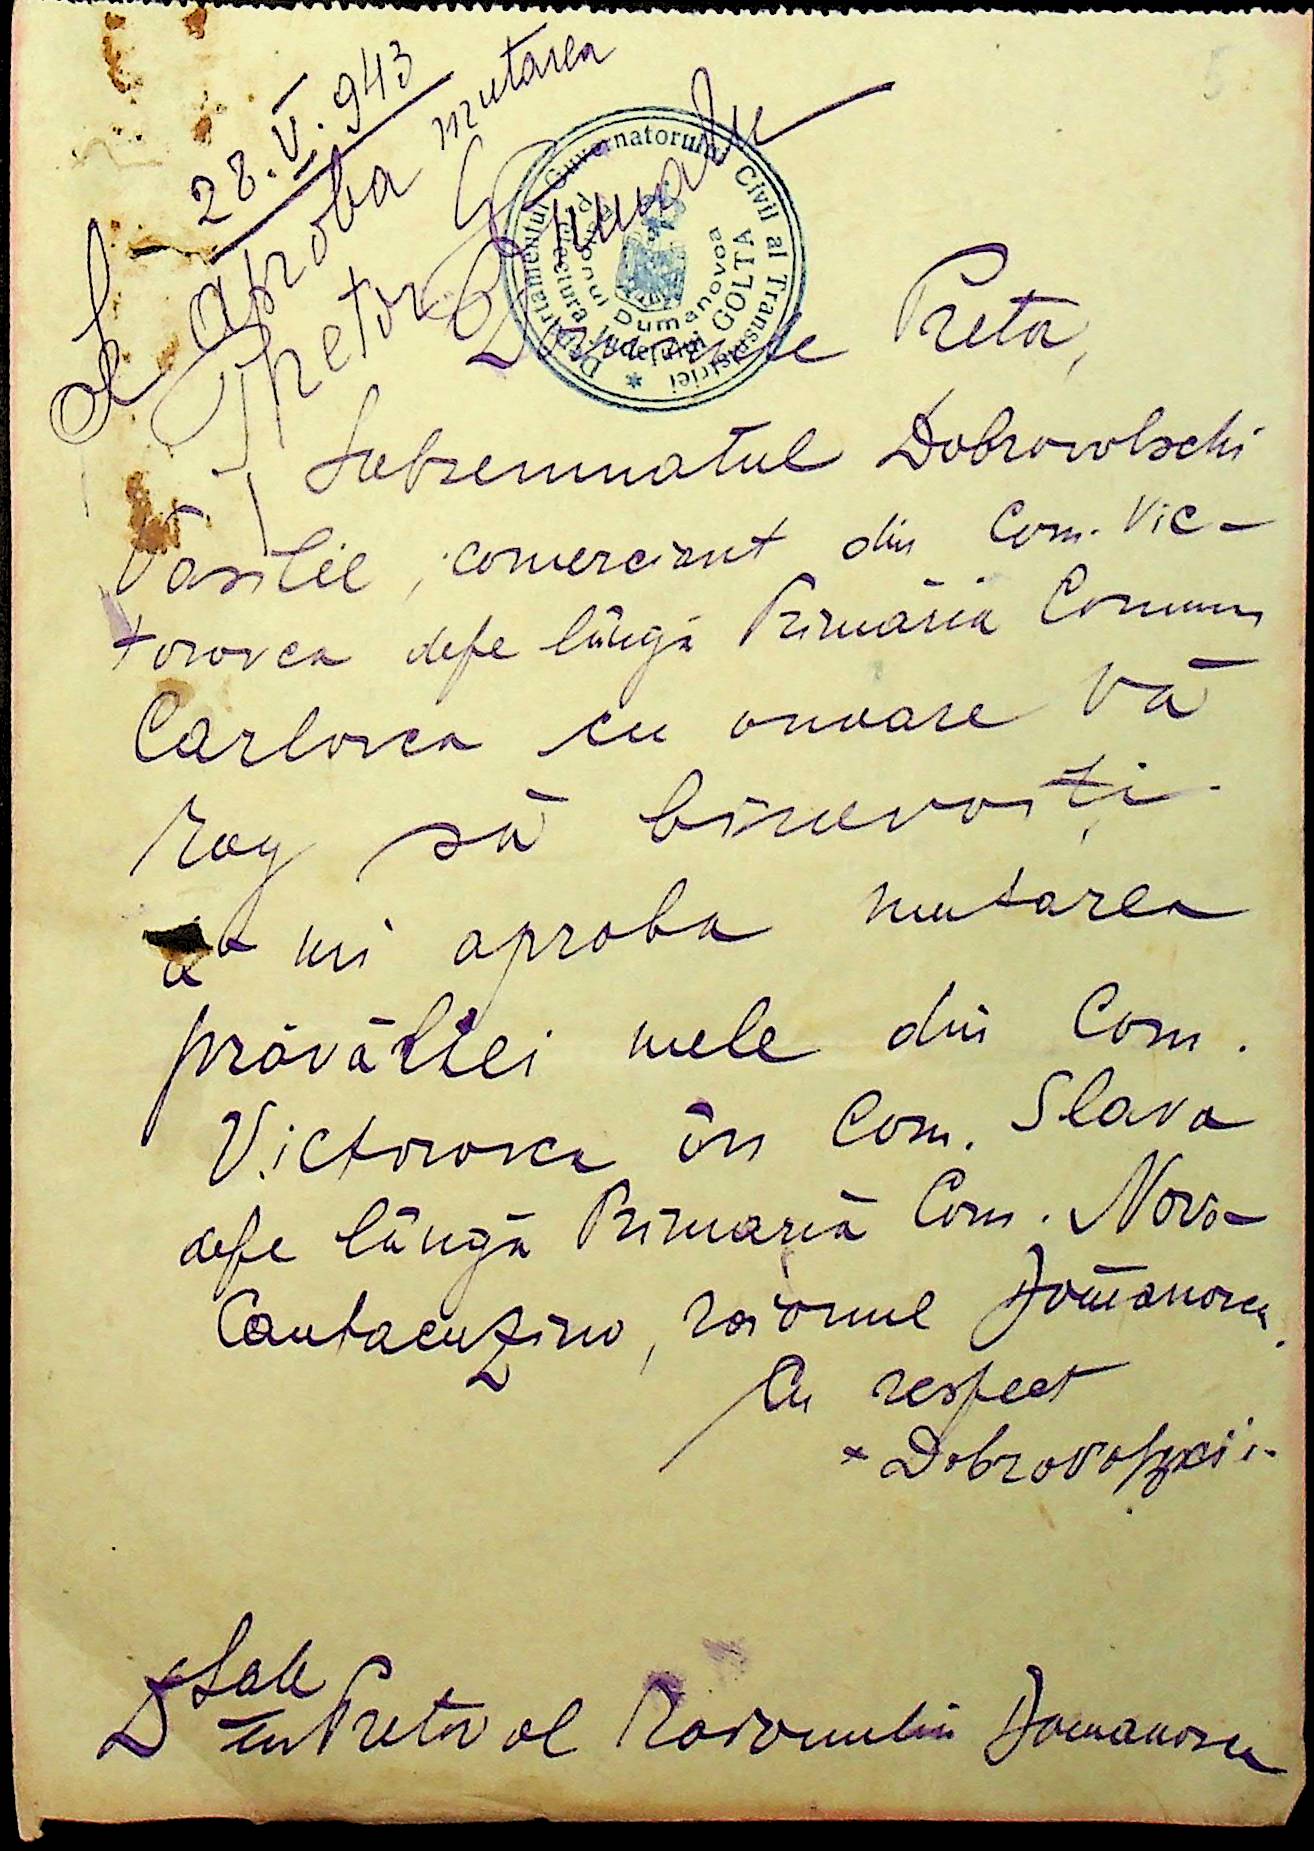 28.V.943
Se aproba mutarea
Pretor
Departamentul Guvernatorului Civil al Transnistriei *
Prefectura Județului GOLTA
Raionul Dumanovca
Domnule Pretor,
Subsemnatul Dobrovolschi
Vasilie, comerciant din Com. Vic-
torovca depe lângă Primăria Comunei
Carlovca cu onoare Vă
rog să binevoiți
a mi aproba mutarea
prăvăliei mele din Com.
Victorovca în Com. Slava
depe lângă Primăria Com. Novo-
Cantacuzino, raionul Domanovca.
Cu respect
× Dobrovolschi
D Sale
Dlui Pretor al Raionului Domanovca